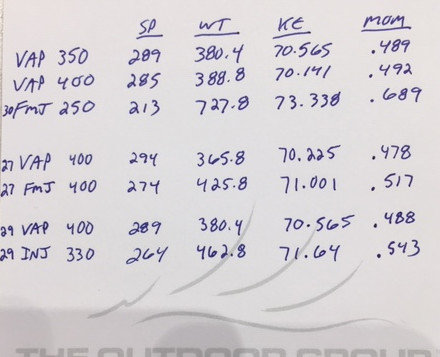 SP WT KE MOM
VAP 350 289 380.4 70.565 .489
VAP 400 285 388.8 70.141 .492
30 FMJ 250 213 727.8 73.338 .689
27 VAP 400 294 365.8 70.225 .478
27 FMJ 400 274 425.8 71.001 .517
29 VAP 400 289 380.4 70.565 .488
29 INJ 330 264 462.8 71.64 .543
THE OUTDOOR GROUP